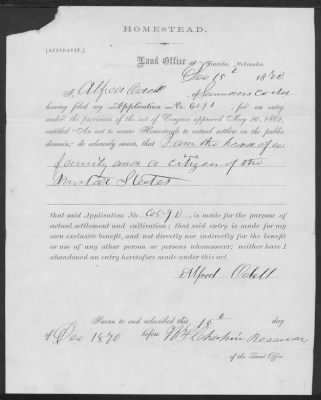 HOMESTEAD.
[AFFIDAVIT.]
Land Office at Lincoln, Nebraska
Dec 15th 1870.
I, Alfred Odell, of Saunders Co Neb
having filed my Application No. 6090 for an entry
under the provisions of the act of Congress approved May 20, 1862,
entitled "An act to secure Homesteads to actual settlers on the public
domain," do solemnly swear, that I am the head of a
family and a citizen of the
United States
that said Application No. 6090 is made for the purpose of
actual settlement and cultivation; that said entry is made for my
own exclusive benefit, and not directly nor indirectly for the benefit
or use of any other person or persons whomsoever; neither have I
abandoned an entry heretofore made under this act.
Alfred Odell
Sworn to and subscribed this 15th day
of Dec 1870 before
of the Land Office